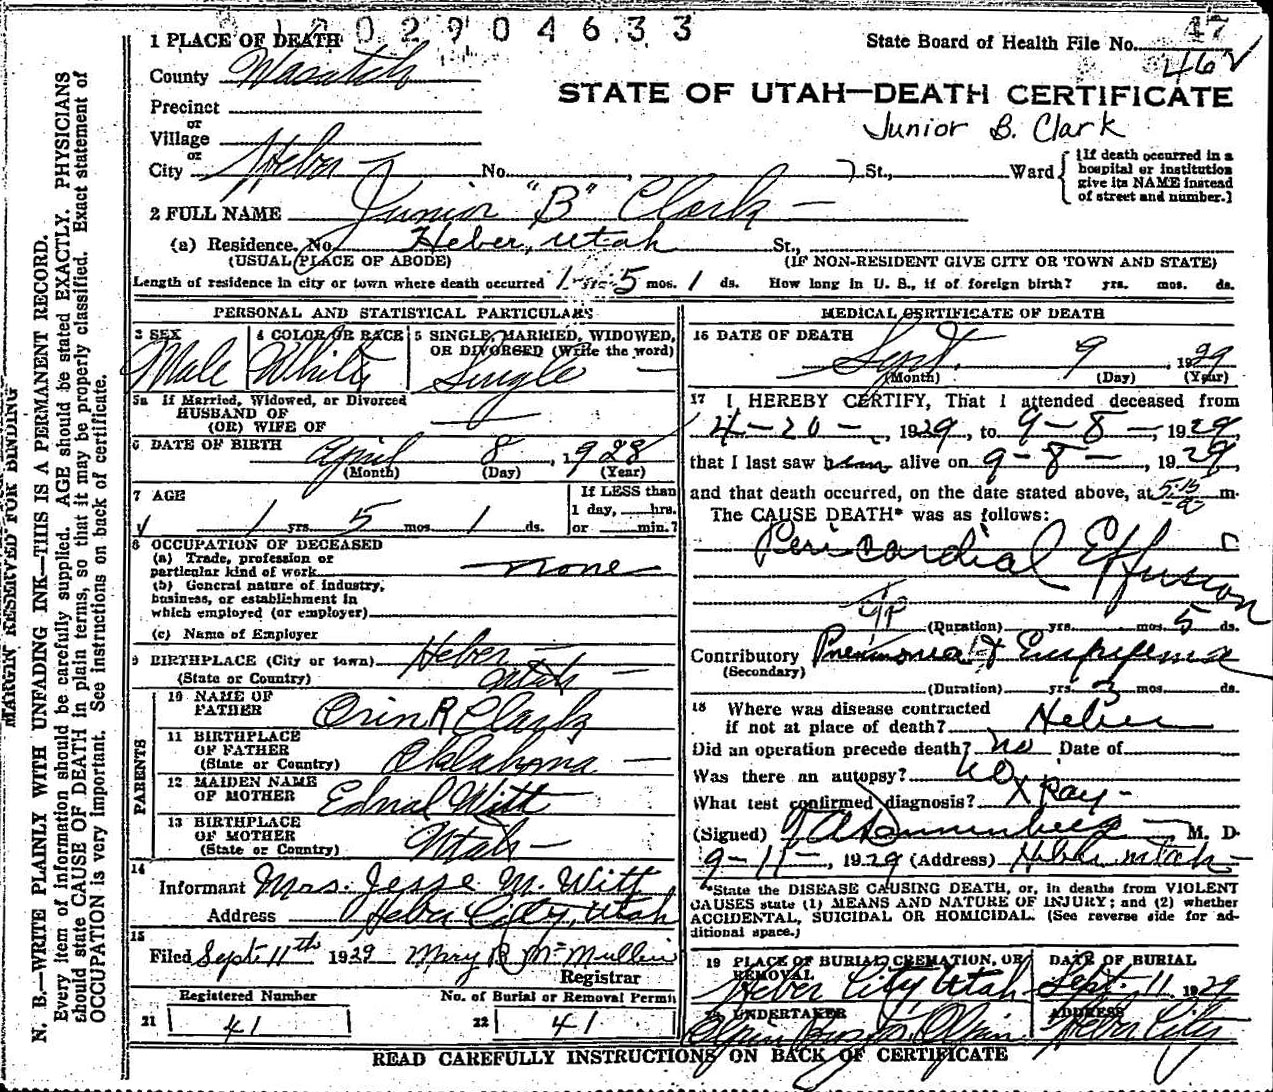 02904633
1 PLACE OF DEATH
State Board of Health File No. 47
46
County Wasatch
STATE OF UTAH—DEATH CERTIFICATE
Precinct
or
Village
Junior B. Clark
or
City Heber No. , St., Ward
{If death occurred in a hospital or institution give its NAME instead of street and number.}
2 FULL NAME Junior "B" Clark —
(a) Residence. No. Heber, Utah St.,
(USUAL PLACE OF ABODE) (IF NON-RESIDENT GIVE CITY OR TOWN AND STATE)
Length of residence in city or town where death occurred 1 yrs. 5 mos. 1 ds. How long in U. S., if of foreign birth? yrs. mos. ds.
PERSONAL AND STATISTICAL PARTICULARS
3 SEX Male
4 COLOR OR RACE White
5 SINGLE, MARRIED, WIDOWED, OR DIVORCED (Write the word) Single —
5a If Married, Widowed, or Divorced
HUSBAND OF
(OR) WIFE OF
6 DATE OF BIRTH April 8, 1928
(Month) (Day) (Year)
7 AGE
1 yrs. 5 mos. 1 ds.
If LESS than
1 day, hrs.
or min.?
8 OCCUPATION OF DECEASED
(a) Trade, profession or
particular kind of work none
(b) General nature of industry,
business, or establishment in
which employed (or employer)
(c) Name of Employer
9 BIRTHPLACE (City or town) Heber —
(State or Country) Utah
PARENTS
10 NAME OF FATHER Orin R Clark
11 BIRTHPLACE OF FATHER
(State or Country) Oklahoma —
12 MAIDEN NAME OF MOTHER Ednal Witt
13 BIRTHPLACE OF MOTHER
(State or Country) Utah —
14
Informant Mrs. Jesse M. Witt
Address Heber City, Utah
15
Filed Sept. 11th 1929 Mary B McMullin
Registrar
Registered Number
21 41
No. of Burial or Removal Permit
22 41
MEDICAL CERTIFICATE OF DEATH
16 DATE OF DEATH
Sept. 9 1929
(Month) (Day) (Year)
17 I HEREBY CERTIFY, That I attended deceased from
4-20-, 1929, to 9-8-, 1929,
that I last saw him alive on 9-8-, 1929,
and that death occurred, on the date stated above, at m.
The CAUSE DEATH* was as follows:
Pericardial Effusion
(Duration) yrs. mos. 5 ds.
Contributory Pneumonia & Empyema
(Secondary)
(Duration) yrs. 3 mos. ds.
18 Where was disease contracted
if not at place of death? Heber
Did an operation precede death? no Date of
Was there an autopsy? no
What test confirmed diagnosis? X Ray —
(Signed) M. D.
9-11-, 1929 (Address) Heber Utah —
*State the DISEASE CAUSING DEATH, or, in deaths from VIOLENT
CAUSES state (1) MEANS AND NATURE OF INJURY; and (2) whether
ACCIDENTAL, SUICIDAL OR HOMICIDAL. (See reverse side for ad-
ditional space.)
19 PLACE OF BURIAL, CREMATION, OR REMOVAL
Heber City Utah
DATE OF BURIAL
Sept. 11 1929
UNDERTAKER
ADDRESS
Heber City
READ CAREFULLY INSTRUCTIONS ON BACK OF CERTIFICATE
MARGIN RESERVED FOR BINDING
N. B.—WRITE PLAINLY WITH UNFADING INK—THIS IS A PERMANENT RECORD.
Every item of information should be carefully supplied. AGE should be stated EXACTLY. PHYSICIANS
should state CAUSE OF DEATH in plain terms, so that it may be properly classified. Exact statement of
OCCUPATION is very important. See instructions on back of certificate.